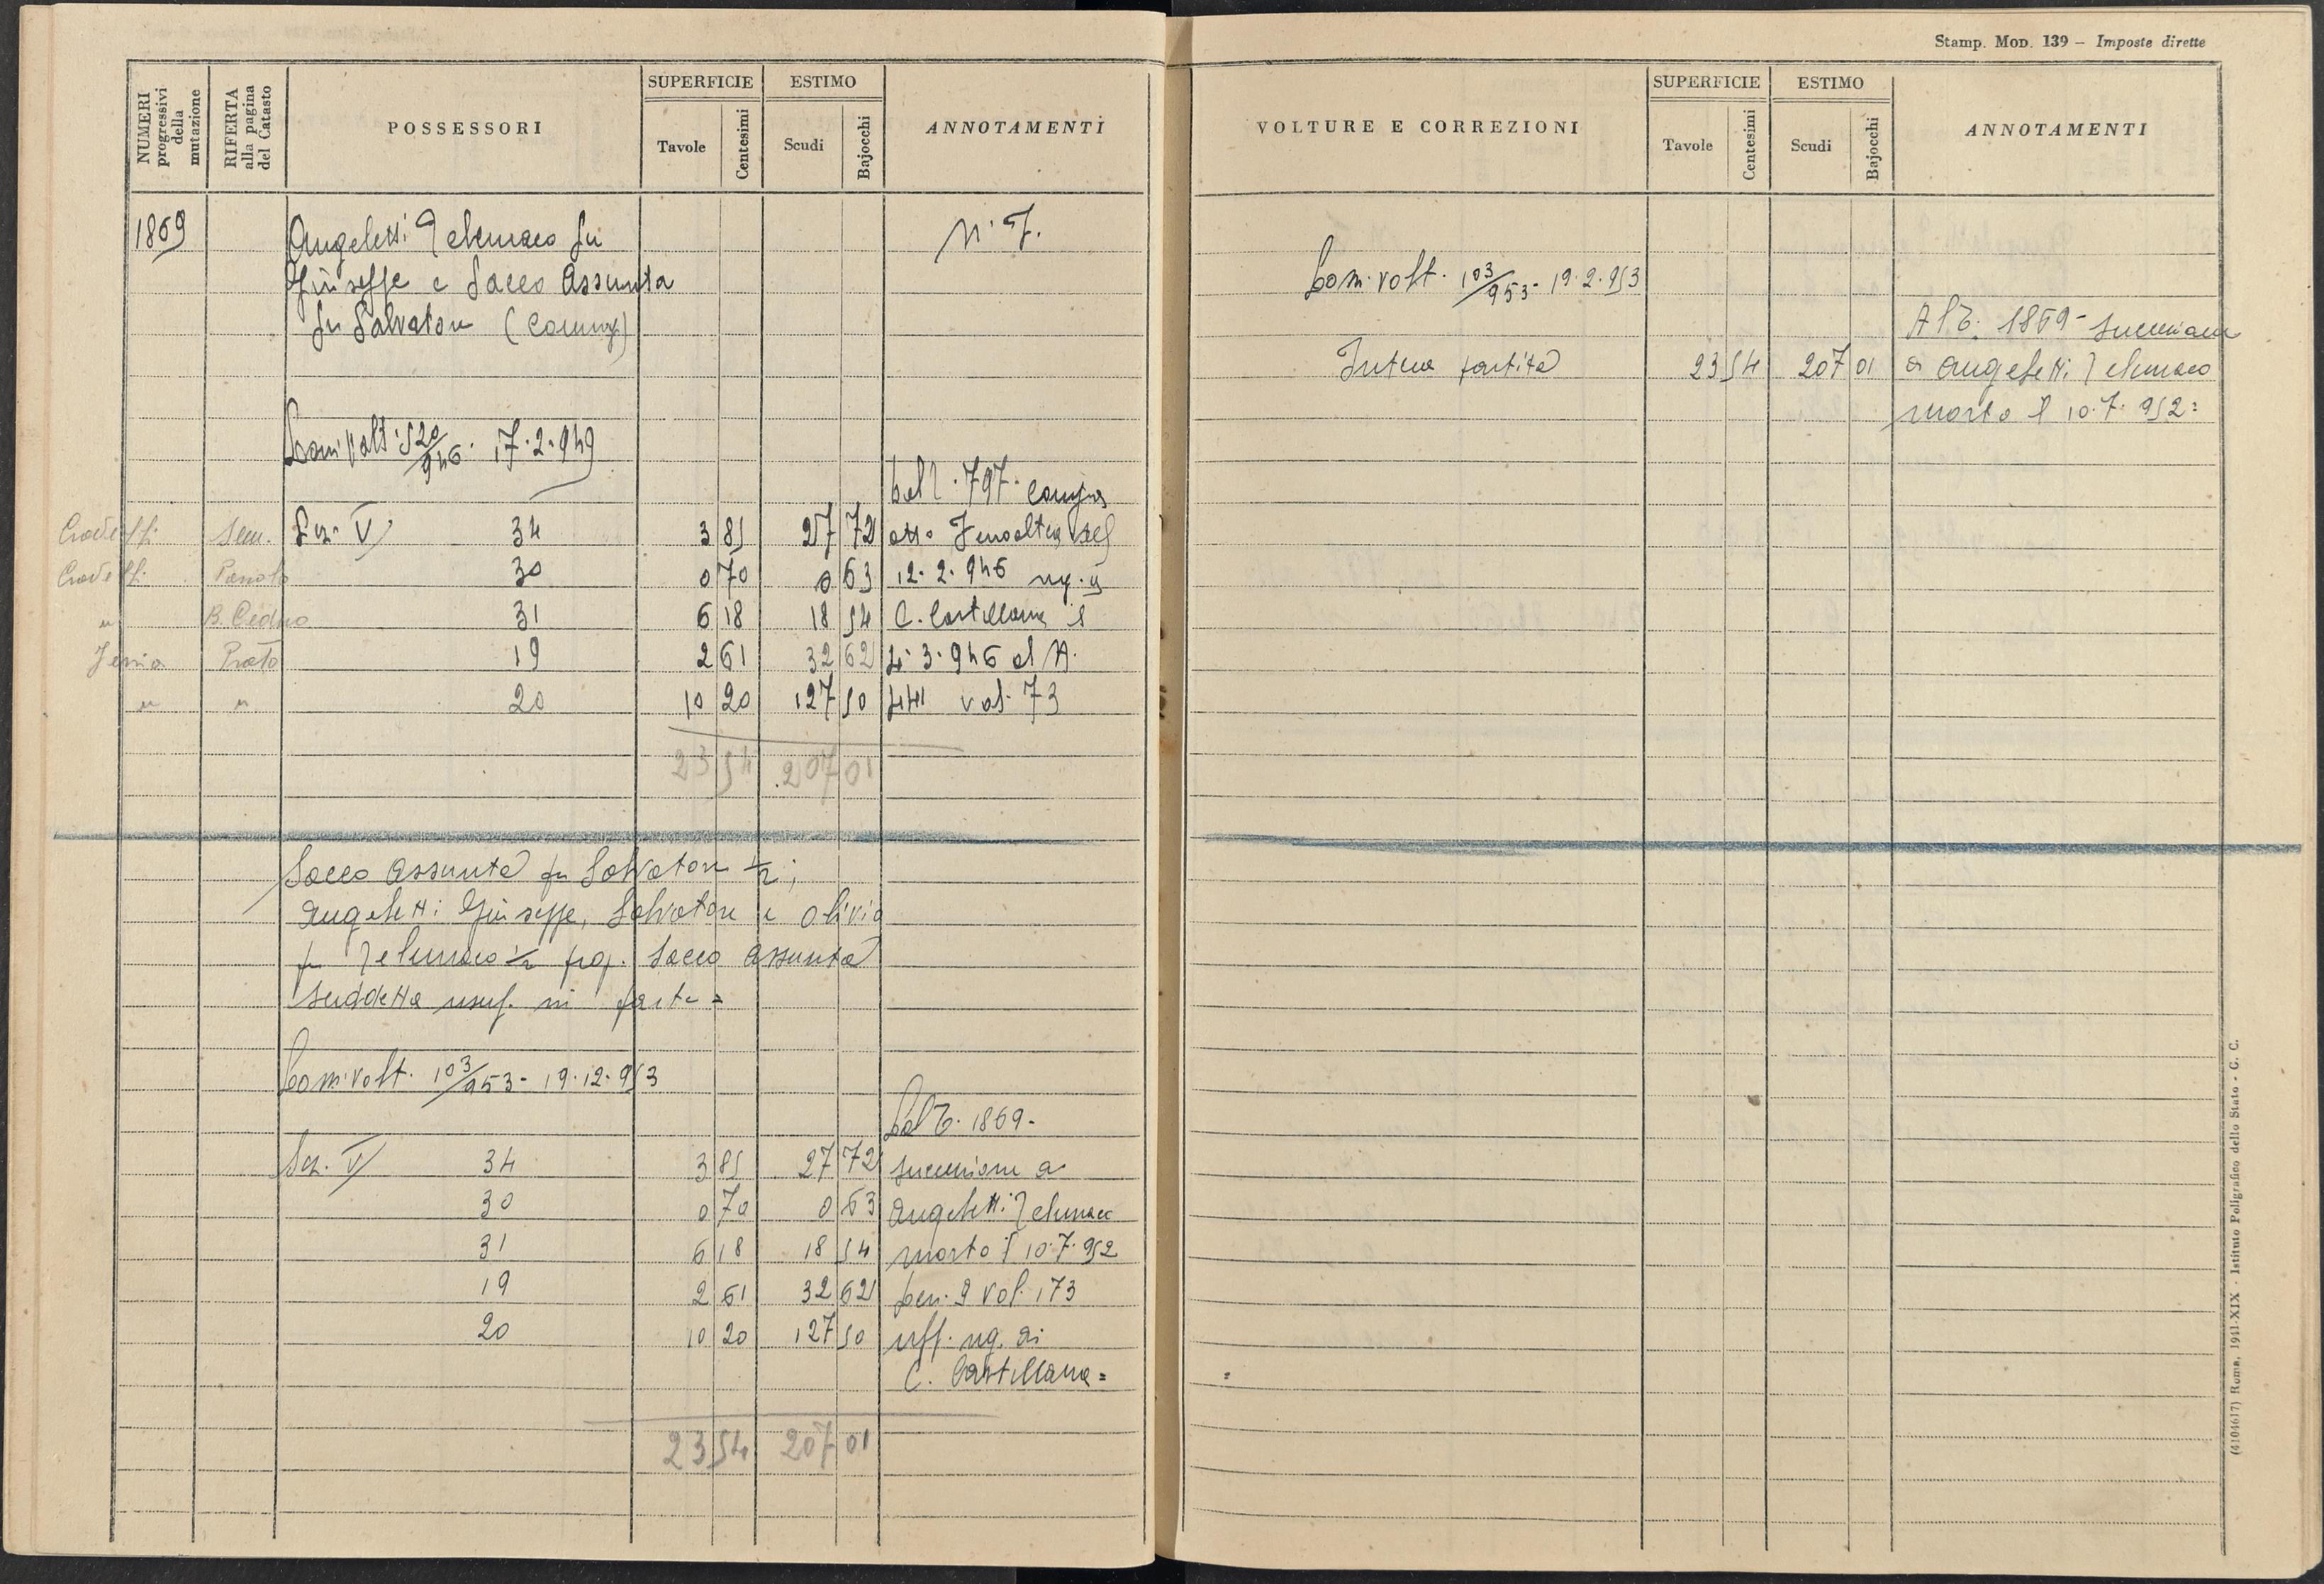 Stamp. Mod. 139 – Imposte dirette
NUMERI progressivi della mutazione
RIFERTA alla pagina del Catasto
POSSESSORI
SUPERFICIE
Tavole
Centesimi
ESTIMO
Scudi
Bajocchi
ANNOTAMENTI
1869
Angeletti Telemaco fu
Giuseppe e Sacco Assunta
fu Salvatore (coniugi)
N. 7.
Com. Volt. 520/946. 17.2.949
Dal T. 797. compra
Sem. Sez. V 34 3 85 27 72 atto
Pascolo 30 0 70 0 63 12.2.946 reg. a
" B. Ceduo 31 6 18 18 54 C. Castellana il
Prato 19 2 61 32 62 4.3.946 al N.
" " 20 10 20 127 50 441 vol. 73
23 54 207 01
Sacco Assunta fu Salvatore 1/2;
Angeletti Giuseppe, Salvatore e Olivia
fu Telemaco 1/2 prop. Sacco Assunta
suddetta usuf. in parte =
Com. Volt. 103/953 - 19.12.953
Dal T. 1869 -
Sez. V 34 3 85 27 72 successione a
30 0 70 0 63 Angeletti Telemaco
31 6 18 18 54 morto il 10.7.952
19 2 61 32 62 den. 9 vol. 173
20 10 20 127 50 uff. reg. di
C. Castellana =
23 54 207 01
VOLTURE E CORREZIONI
SUPERFICIE
Tavole
Centesimi
ESTIMO
Scudi
Bajocchi
ANNOTAMENTI
Com. Volt. 103/953 - 19.2.953
Al T. 1869 - successione
Intera partita 23 54 207 01 a Angeletti Telemaco
morto il 10.7.952 =
(4104617) Roma, 1941-XIX - Istituto Poligrafico dello Stato - C. C.